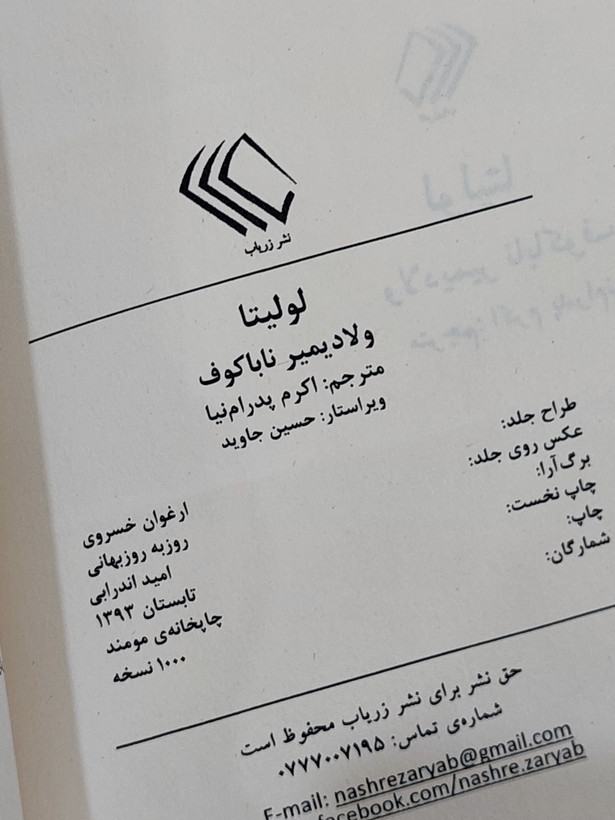 نشر زریاب
لولیتا
ولادیمیر ناباکوف
مترجم: اکرم پدرام‌نیا
ویراستار: حسین جاوید
طراح جلد: ارغوان خسروی
عکس روی جلد: روزبه روزبهانی
برگ‌آرا: امید اندرابی
چاپ نخست: تابستان ۱۳۹۳
چاپ: چاپخانه‌ی مومند
شمارگان: ۱۰۰۰ نسخه
حق نشر برای نشر زریاب محفوظ است
شماره‌ی تماس: ۰۷۷۷۰۰۷۱۹۵
E-mail: nashrezaryab@gmail.com
facebook.com/nashre.zaryab